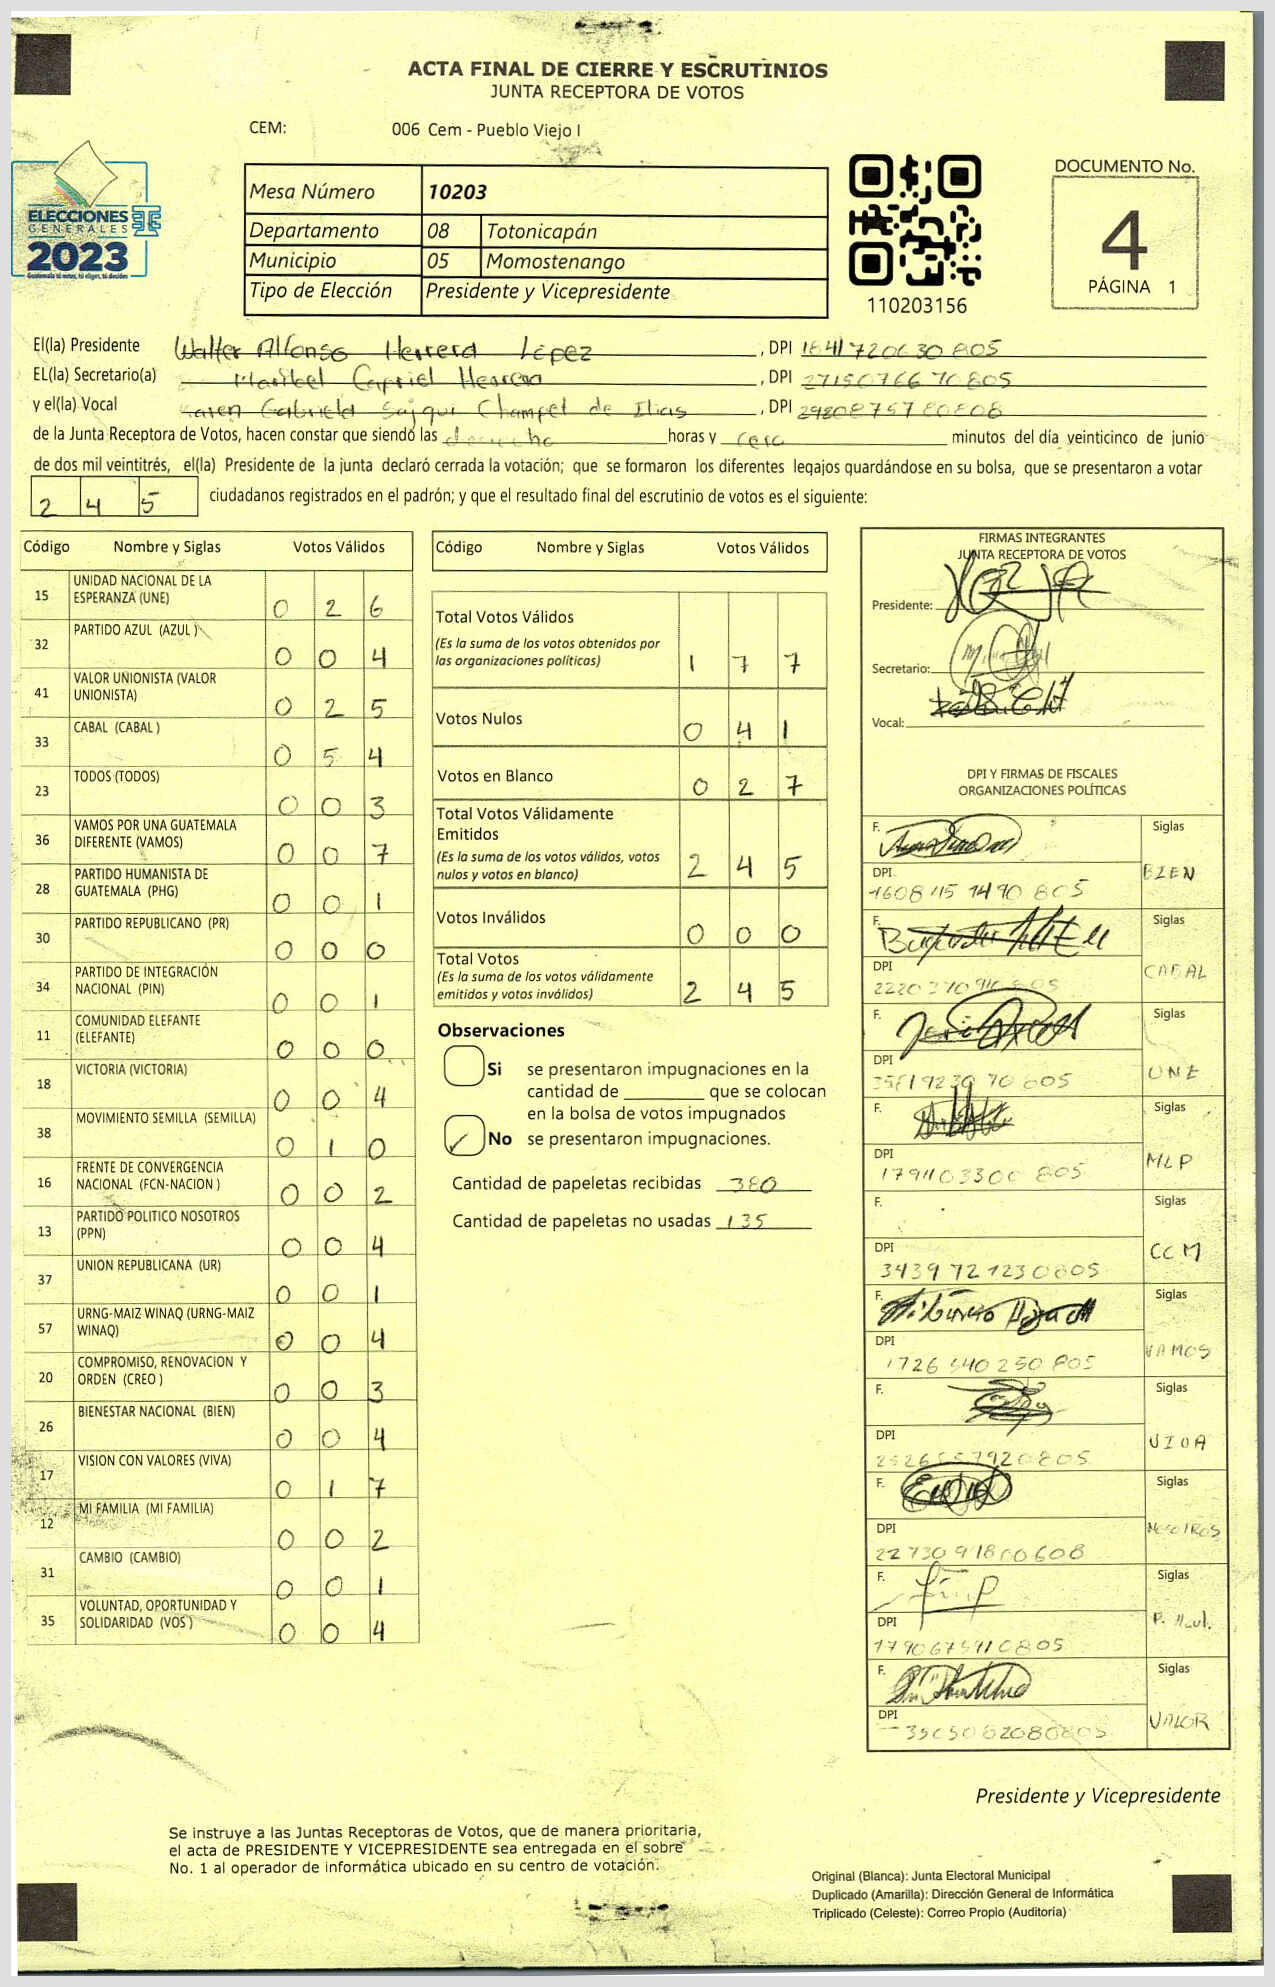 ACTA FINAL DE CIERRE Y ESCRUTINIOS
JUNTA RECEPTORA DE VOTOS
CEM: 006 Cem - Pueblo Viejo I
ELECCIONES
GENERALES
2023
Guatemala tú votas, tú eliges, tú decides
Mesa Número 10203
Departamento 08 Totonicapán
Municipio 05 Momostenango
Tipo de Elección Presidente y Vicepresidente
110203156
DOCUMENTO No.
4
PÁGINA 1
El(la) Presidente Walter Alfonso Herrera López, DPI 1841720630805
EL(la) Secretario(a) Maribel Herrera, DPI 2715076670805
y el(la) Vocal Karen Gabriela Champet de, DPI 2920875780808
de la Junta Receptora de Votos, hacen constar que siendo las horas y cero minutos del día veinticinco de junio
de dos mil veintitrés, el(la) Presidente de la junta declaró cerrada la votación; que se formaron los diferentes legajos guardándose en su bolsa, que se presentaron a votar
2 4 5 ciudadanos registrados en el padrón; y que el resultado final del escrutinio de votos es el siguiente:
Código Nombre y Siglas Votos Válidos
15 UNIDAD NACIONAL DE LA ESPERANZA (UNE) 0 2 6
32 PARTIDO AZUL (AZUL) 0 0 4
41 VALOR UNIONISTA (VALOR UNIONISTA) 0 2 5
33 CABAL (CABAL ) 0 5 4
23 TODOS (TODOS) 0 0 3
36 VAMOS POR UNA GUATEMALA DIFERENTE (VAMOS) 0 0 7
28 PARTIDO HUMANISTA DE GUATEMALA (PHG) 0 0 1
30 PARTIDO REPUBLICANO (PR) 0 0 0
34 PARTIDO DE INTEGRACIÓN NACIONAL (PIN) 0 0 1
11 COMUNIDAD ELEFANTE (ELEFANTE) 0 0 0
18 VICTORIA (VICTORIA) 0 0 4
38 MOVIMIENTO SEMILLA (SEMILLA) 0 1 0
16 FRENTE DE CONVERGENCIA NACIONAL (FCN-NACION ) 0 0 2
13 PARTIDO POLITICO NOSOTROS (PPN) 0 0 4
37 UNION REPUBLICANA (UR) 0 0 1
57 URNG-MAIZ WINAQ (URNG-MAIZ WINAQ) 0 0 4
20 COMPROMISO, RENOVACION Y ORDEN (CREO ) 0 0 3
26 BIENESTAR NACIONAL (BIEN) 0 0 4
17 VISION CON VALORES (VIVA) 0 1 7
12 MI FAMILIA (MI FAMILIA) 0 0 2
31 CAMBIO (CAMBIO) 0 0 1
35 VOLUNTAD, OPORTUNIDAD Y SOLIDARIDAD (VOS ) 0 0 4
Código Nombre y Siglas Votos Válidos
Total Votos Válidos 1 7 7
(Es la suma de los votos obtenidos por
las organizaciones políticas)
Votos Nulos 0 4 1
Votos en Blanco 0 2 7
Total Votos Válidamente
Emitidos 2 4 5
(Es la suma de los votos válidos, votos
nulos y votos en blanco)
Votos Inválidos 0 0 0
Total Votos 2 4 5
(Es la suma de los votos válidamente
emitidos y votos inválidos)
Observaciones
Si se presentaron impugnaciones en la
cantidad de ________ que se colocan
en la bolsa de votos impugnados
No se presentaron impugnaciones.
Cantidad de papeletas recibidas 380
Cantidad de papeletas no usadas 135
FIRMAS INTEGRANTES
JUNTA RECEPTORA DE VOTOS
Presidente:
Secretario:
Vocal:
DPI Y FIRMAS DE FISCALES
ORGANIZACIONES POLÍTICAS
F. Siglas
DPI BIEN
F. Siglas
DPI CABAL
F. Siglas
DPI UNE
F. Siglas
DPI MLP
F. Siglas
DPI CCM
3439721230805
F. Siglas
DPI VAMOS
F. Siglas
DPI
F. Siglas
DPI NOSOTROS
F. Siglas
DPI
F. Siglas
DPI VALOR
Presidente y Vicepresidente
Se instruye a las Juntas Receptoras de Votos, que de manera prioritaria,
el acta de PRESIDENTE Y VICEPRESIDENTE sea entregada en el sobre
No. 1 al operador de informática ubicado en su centro de votación.
Original (Blanca): Junta Electoral Municipal
Duplicado (Amarilla): Dirección General de Informática
Triplicado (Celeste): Correo Propio (Auditoría)